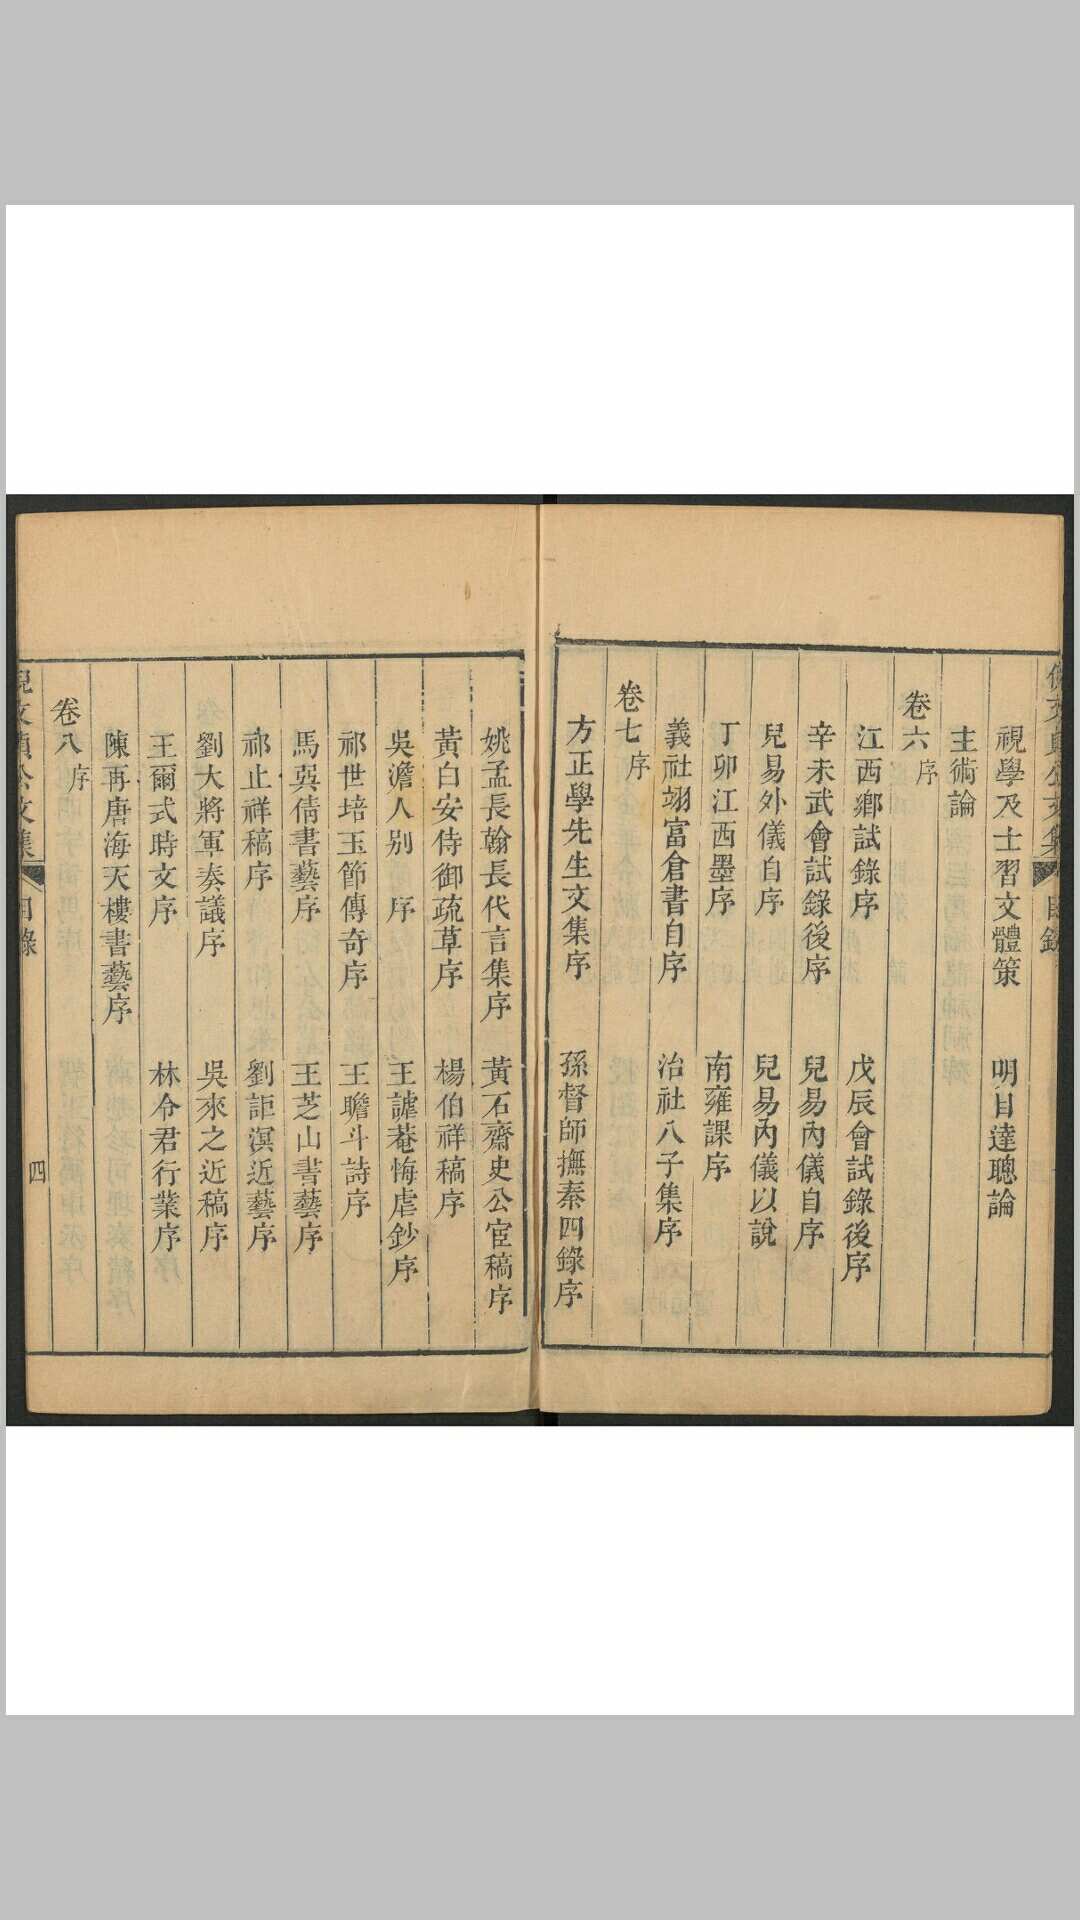 視學及士習文體策　明目達聰論
主術論
卷六 序
江西鄉試錄序　戊辰會試錄後序
辛未武會試錄後序　兒易內儀自序
兒易外儀自序　兒易內儀以說
丁卯江西墨序　南雍課序
義社翊富倉書自序　治社八子集序
卷七 序
方正學先生文集序　孫督師撫秦四錄序
姚孟長翰長代言集序　黃石齋史公宦稿序
黃白安侍御疏草序　楊伯祥稿序
吳澹人別　序　王謔菴悔虐鈔序
祁世培玉節傳奇序　王瞻斗詩序
馬巽倩書藝序　王芝山書藝序
祁止祥稿序　劉詎溟近藝序
劉大將軍奏議序　吳來之近稿序
王爾式時文序　林令君行業序
陳再唐海天樓書藝序
卷八 序
倪文貞公文集　目錄　四